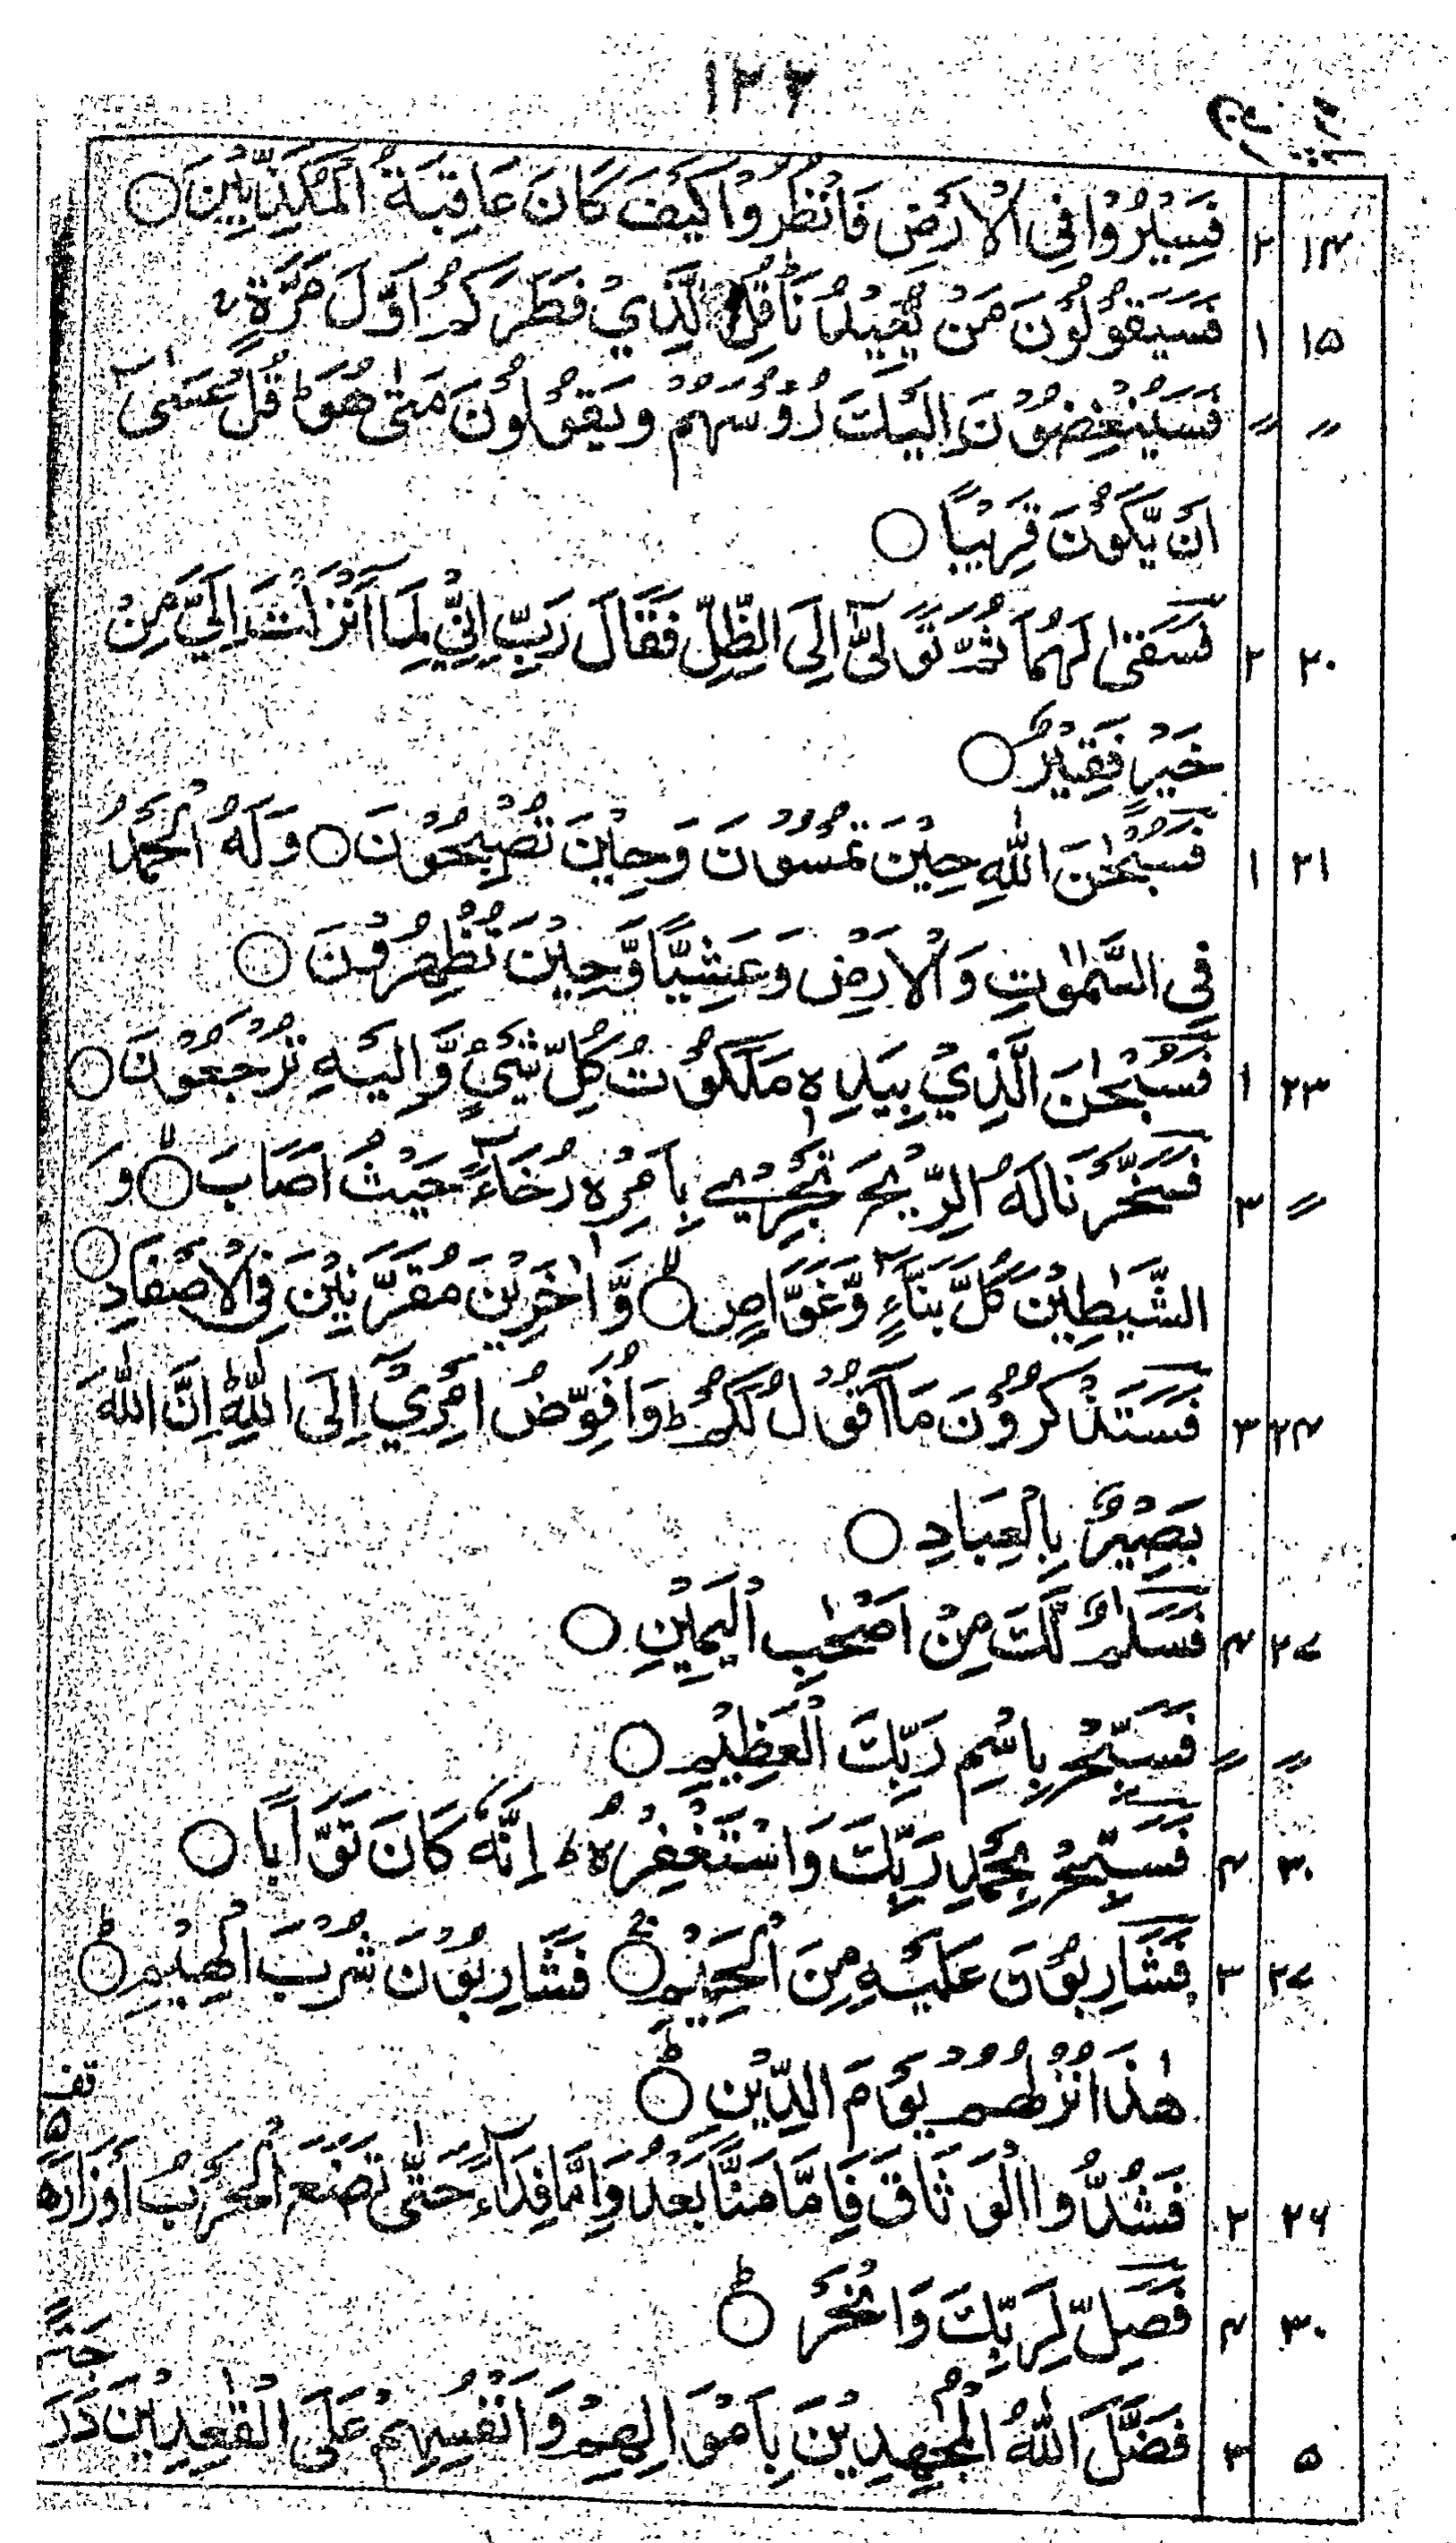 ۱۲۲
۱۴ ۲ فَسِيْرُوْا فِي الْاَرْضِ فَانْظُرُوْا كَيْفَ كَانَ عَاقِبَةُ الْمُكَذِّبِيْنَ ○
۱۵ ۱ فَسَيَقُوْلُوْنَ مَنْ يُّعِيْدُنَا قُلِ الَّذِيْ فَطَرَكُمْ اَوَّلَ مَرَّةٍ
〃 〃 فَسَيُنْغِضُوْنَ اِلَيْكَ رُءُوْسَهُمْ وَيَقُوْلُوْنَ مَتٰى هُوَ ؕ قُلْ عَسٰٓى
اَنْ يَّكُوْنَ قَرِيْبًا ○
۲۰ ۲ فَسَقٰى لَهُمَا ثُمَّ تَوَلّٰىٓ اِلَى الظِّلِّ فَقَالَ رَبِّ اِنِّيْ لِمَآ اَنْزَلْتَ اِلَيَّ مِنْ
خَيْرٍ فَقِيْرٌ ○
۲۱ ۱ فَسُبْحٰنَ اللّٰهِ حِيْنَ تُمْسُوْنَ وَحِيْنَ تُصْبِحُوْنَ ○ وَلَهُ الْحَمْدُ
فِي السَّمٰوٰتِ وَالْاَرْضِ وَعَشِيًّا وَّحِيْنَ تُظْهِرُوْنَ ○
۲۳ ۱ فَسُبْحٰنَ الَّذِيْ بِيَدِهٖ مَلَكُوْتُ كُلِّ شَيْءٍ وَّاِلَيْهِ تُرْجَعُوْنَ ○
〃 ۳ فَسَخَّرْنَا لَهُ الرِّيْحَ تَجْرِيْ بِاَمْرِهٖ رُخَآءً حَيْثُ اَصَابَ ○ وَ
الشَّيٰطِيْنَ كُلَّ بَنَّآءٍ وَّغَوَّاصٍ ○ وَّاٰخَرِيْنَ مُقَرَّنِيْنَ فِي الْاَصْفَادِ ○
۲۴ ۳ فَسَتَذْكُرُوْنَ مَآ اَقُوْلُ لَكُمْ ؕ وَاُفَوِّضُ اَمْرِيْٓ اِلَى اللّٰهِ ؕ اِنَّ اللّٰهَ
بَصِيْرٌۢ بِالْعِبَادِ ○
۲۷ ۴ فَسَلٰمٌ لَّكَ مِنْ اَصْحٰبِ الْيَمِيْنِ ○
〃 〃 فَسَبِّحْ بِاسْمِ رَبِّكَ الْعَظِيْمِ ○
۳۰ ۴ فَسَبِّحْ بِحَمْدِ رَبِّكَ وَاسْتَغْفِرْهُ ؕ اِنَّهٗ كَانَ تَوَّابًا ○
۲۷ ۳ فَشَارِبُوْنَ عَلَيْهِ مِنَ الْحَمِيْمِ ○ فَشَارِبُوْنَ شُرْبَ الْهِيْمِ ○
هٰذَا نُزُلُهُمْ يَوْمَ الدِّيْنِ ○
۲۶ ۲ فَشُدُّوا الْوَثَاقَ فَاِمَّا مَنًّا بَعْدُ وَاِمَّا فِدَآءً حَتّٰى تَضَعَ الْحَرْبُ اَوْزَارَهَ
۳۰ ۴ فَصَلِّ لِرَبِّكَ وَانْحَرْ ○
۵ ۳ فَضَّلَ اللّٰهُ الْمُجٰهِدِيْنَ بِاَمْوَالِهِمْ وَاَنْفُسِهِمْ عَلَى الْقٰعِدِيْنَ دَرَ